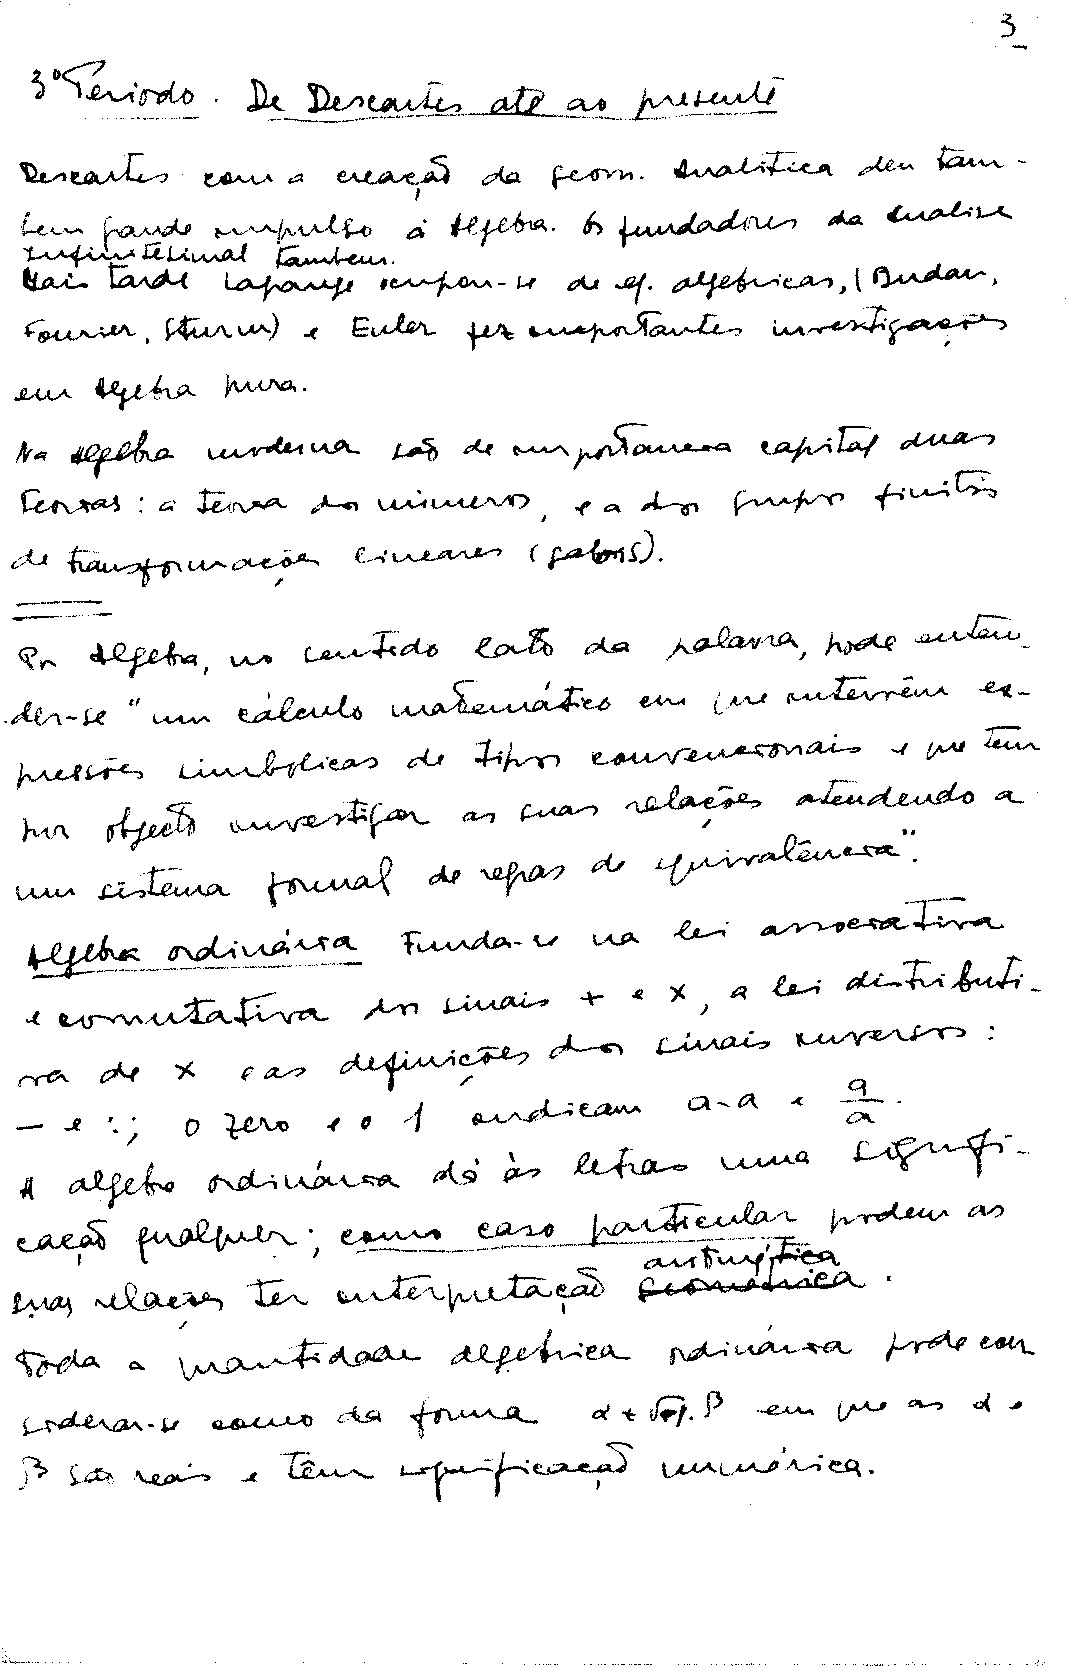 3
3º Período. De Descartes até ao presente
Descartes com a creação da geom. Analitica deu tam-
bem grande impulso á Algebra. Os fundadores da Analise
Infinitesimal tambem.
Mais tarde Lagrange ocupou-se de eq. algebricas, (Budan,
Fourier, Sturm) e Euler fez importantes investigações
em Algebra pura.
Na Algebra moderna são de importancia capital duas
teorias: a teoria dos números, e a dos grupos finitos
de transformações lineares (galois).
Por Algebra, no sentido lato da palavra, pode enten-
der-se "um cálculo matemático em que intervêm ex-
pressões simbolicas de tipos convencionais e que tem
por objecto investigar as suas relações atendendo a
um sistema formal de regras de equivalência".
Algebra ordinária Funda-se na lei associativa
e comutativa dos sinais + e ×, a lei distributi-
va de × e as definições dos sinais inversos:
- e :; o zero e o 1 indicam a-a e a/a.
A algebra ordinária dá às letras uma signifi-
cação qualquer; como caso particular podem as
aritmética
suas relações ter interpretação geométrica.
Toda a quantidade algebrica ordinária pode con
siderar-se como da forma α+√-1.β em que as α e
β são reais e têm significação numérica.